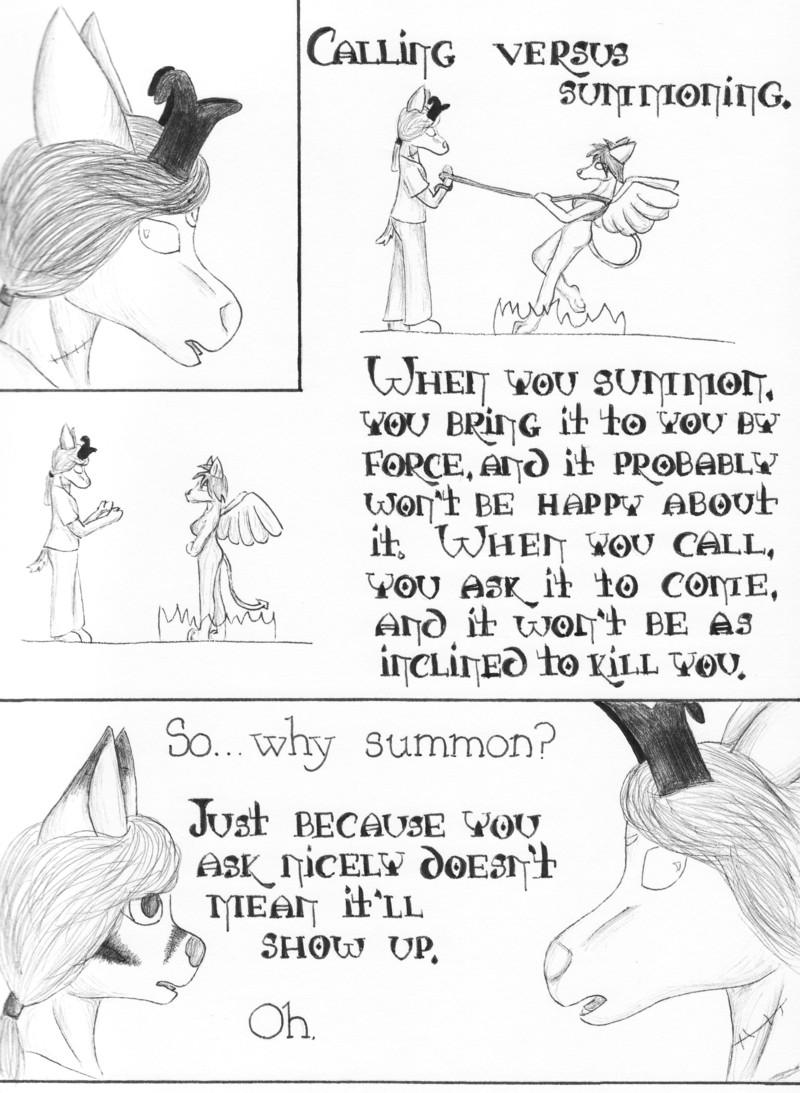 Calling versus
summoning.
When you summon,
you bring it to you by
force, and it probably
won't be happy about
it. When you call,
you ask it to come,
and it won't be as
inclined to kill you.
So... why summon?
Just because you
ask nicely doesn't
mean it'll
show up.
Oh.